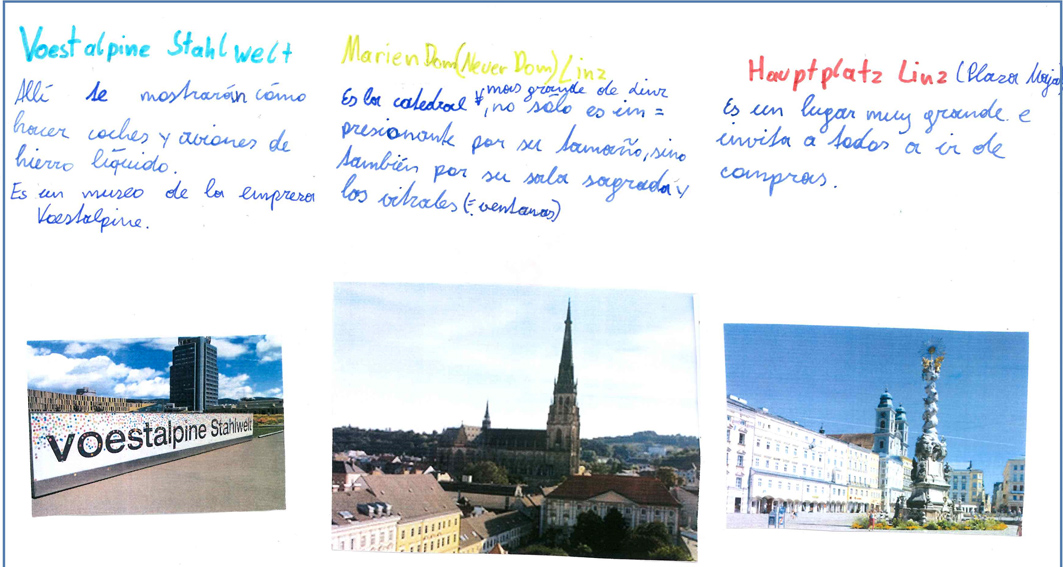 Voestalpine Stahlwelt
Allí te mostrarán cómo
hacer coches y aviones de
hierro líquido.
Es un museo de la empresa
Voestalpine.
voestalpine Stahlwelt
MarienDom (Neuer Dom) Linz
Es la catedral más grande de Linz
, no sólo es im=
presionante por su tamaño, sino
también por su sala sagrada y
los vitrales (= ventanas)
Hauptplatz Linz (Plaza
Es un lugar muy grande e
invita a todos a ir de
compras.